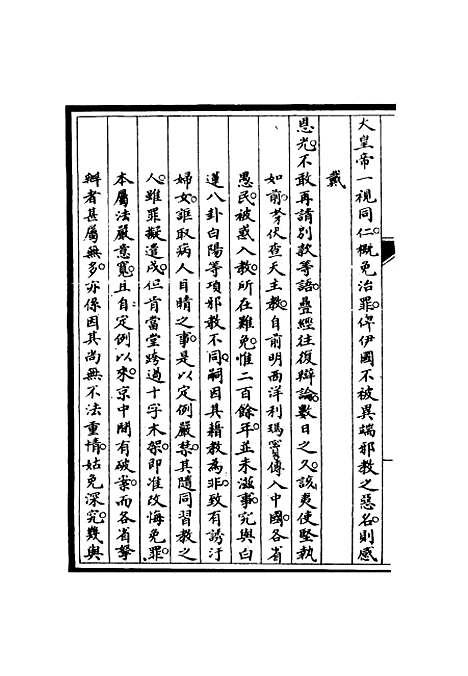 大皇帝一視同仁概免治罪俾伊國不被異端邪教之惡名則感
戴
恩光不敢再請別款等語疊經往復辯論數日之久該夷使堅執
如前等伏查天主教自前明西洋利瑪竇傳入中國各省
愚民被惑入教所在難免惟二百餘年並未滋事究與白
蓮八卦白陽等項邪教不同嗣因其藉教為非致有誘汙
婦女誆取病人目睛之事是以定例嚴禁其隨同習教之
人雖罪擬遣戍但肯當堂跨過十字木架即准改悔免罪
本屬法嚴意寬且自定例以來京中閒有破案而各省拏
辦者甚屬無多亦係因其尚無不法重情姑免深究幾與